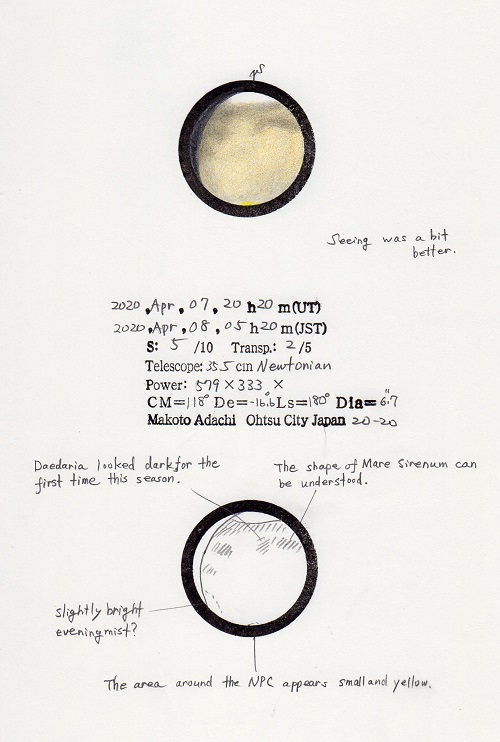 Seeing was a bit
better.
2020, Apr, 07, 20 h 20 m (UT)
2020, Apr, 08, 05 h 20 m (JST)
S: 5 /10 Transp.: 2/5
Telescope: 35.5 cm Newtonian
Power: 579 × 333 ×
CM=118° De=-16.6 Ls=180° Dia=6.7"
Makoto Adachi Ohtsu City Japan 20-20
Daedaria looked dark for the
first time this season.
The shape of Mare Sirenum can
be understood.
slightly bright
evening mist?
The area around the NPC appears small and yellow.